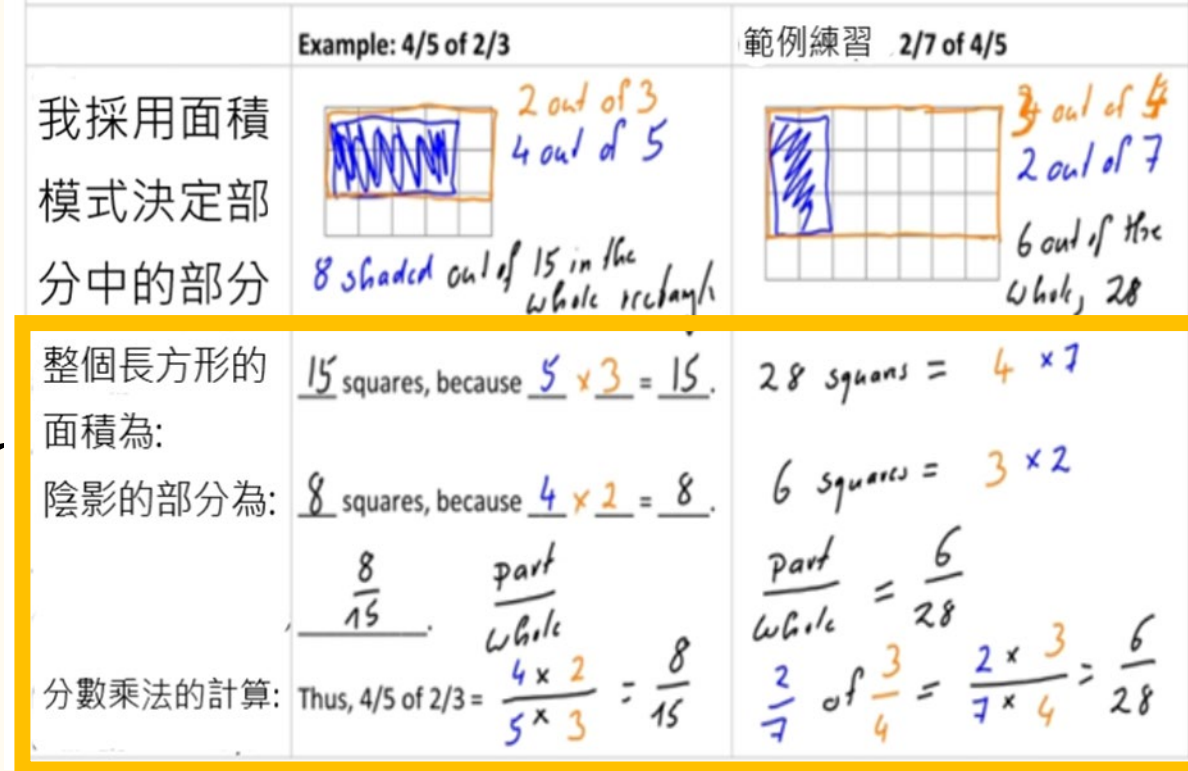 Example: 4/5 of 2/3
範例練習 2/7 of 4/5
我採用面積
模式決定部
分中的部分
2 out of 3
4 out of 5
8 shaded out of 15 in the
whole rectangle
3 out of 4
2 out of 7
6 out of the
whole, 28
整個長方形的
面積為:
15 squares, because 5 × 3 = 15.
28 squares = 4 × 7
陰影的部分為:
8 squares, because 4 × 2 = 8.
6 squares = 3 × 2
8/15.
part/whole
part/whole = 6/28
分數乘法的計算:
Thus, 4/5 of 2/3 = 4 × 2/5 × 3 = 8/15
2/7 of 3/4 = 2 × 3/7 × 4 = 6/28